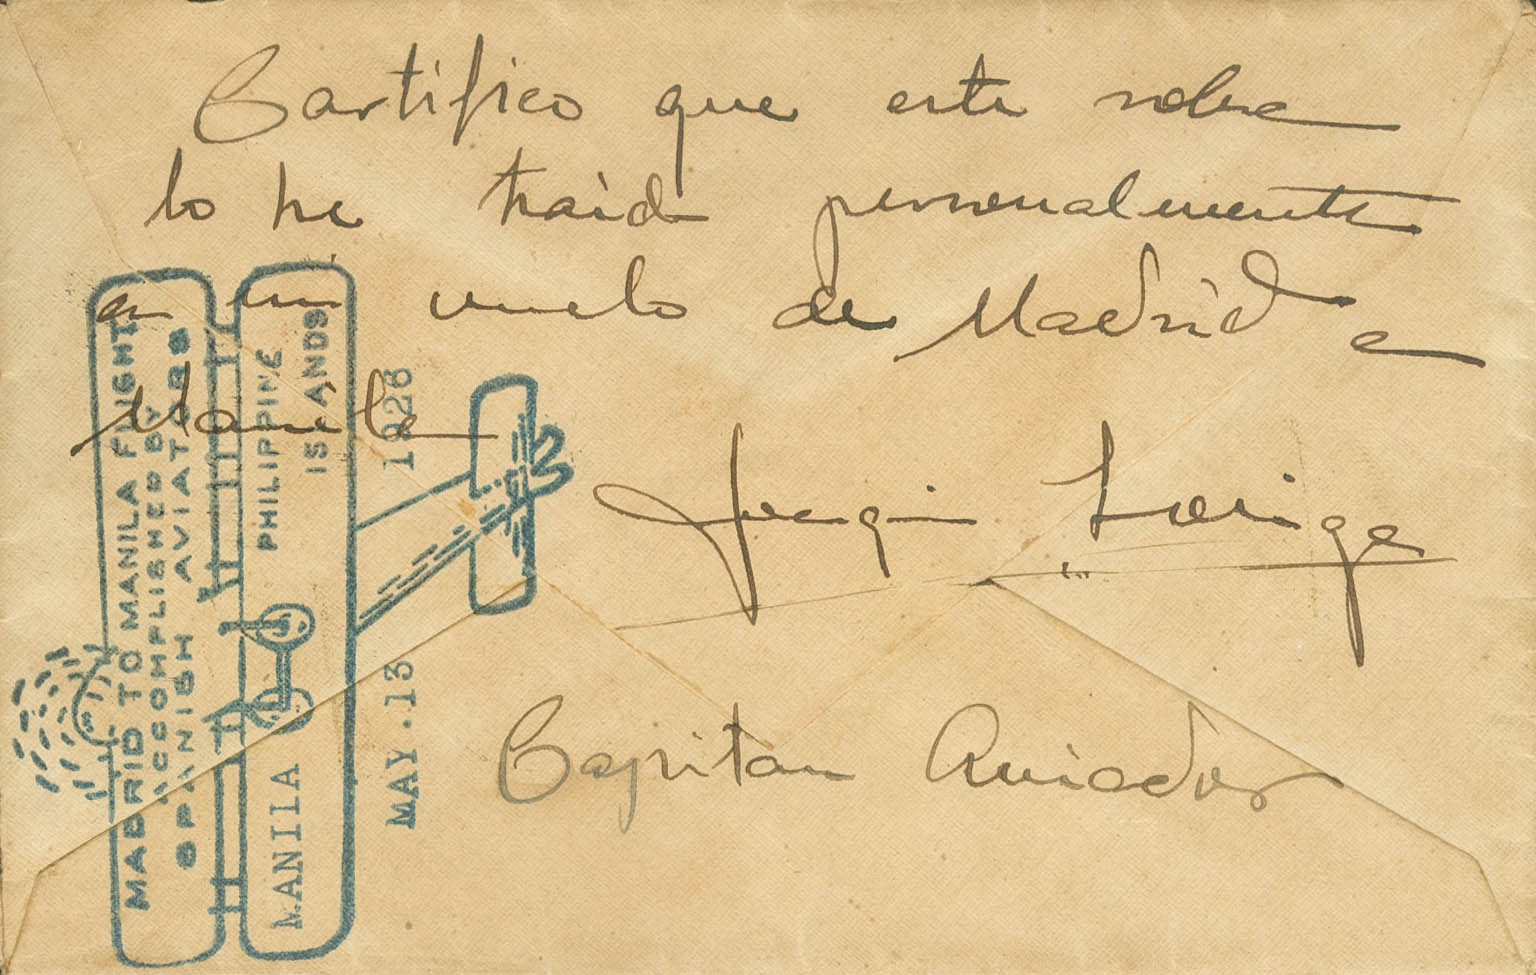 Certifico que este sobre
lo he traido personalmente
en un vuelo de Madrid a
Manila
Joaquin Loriga
Capitan Aviador
MADRID TO MANILA FLIGHT
ACCOMPLISHED BY
SPANISH AVIATORS
MANILA PHILIPPINE
ISLANDS
MAY.13 1926